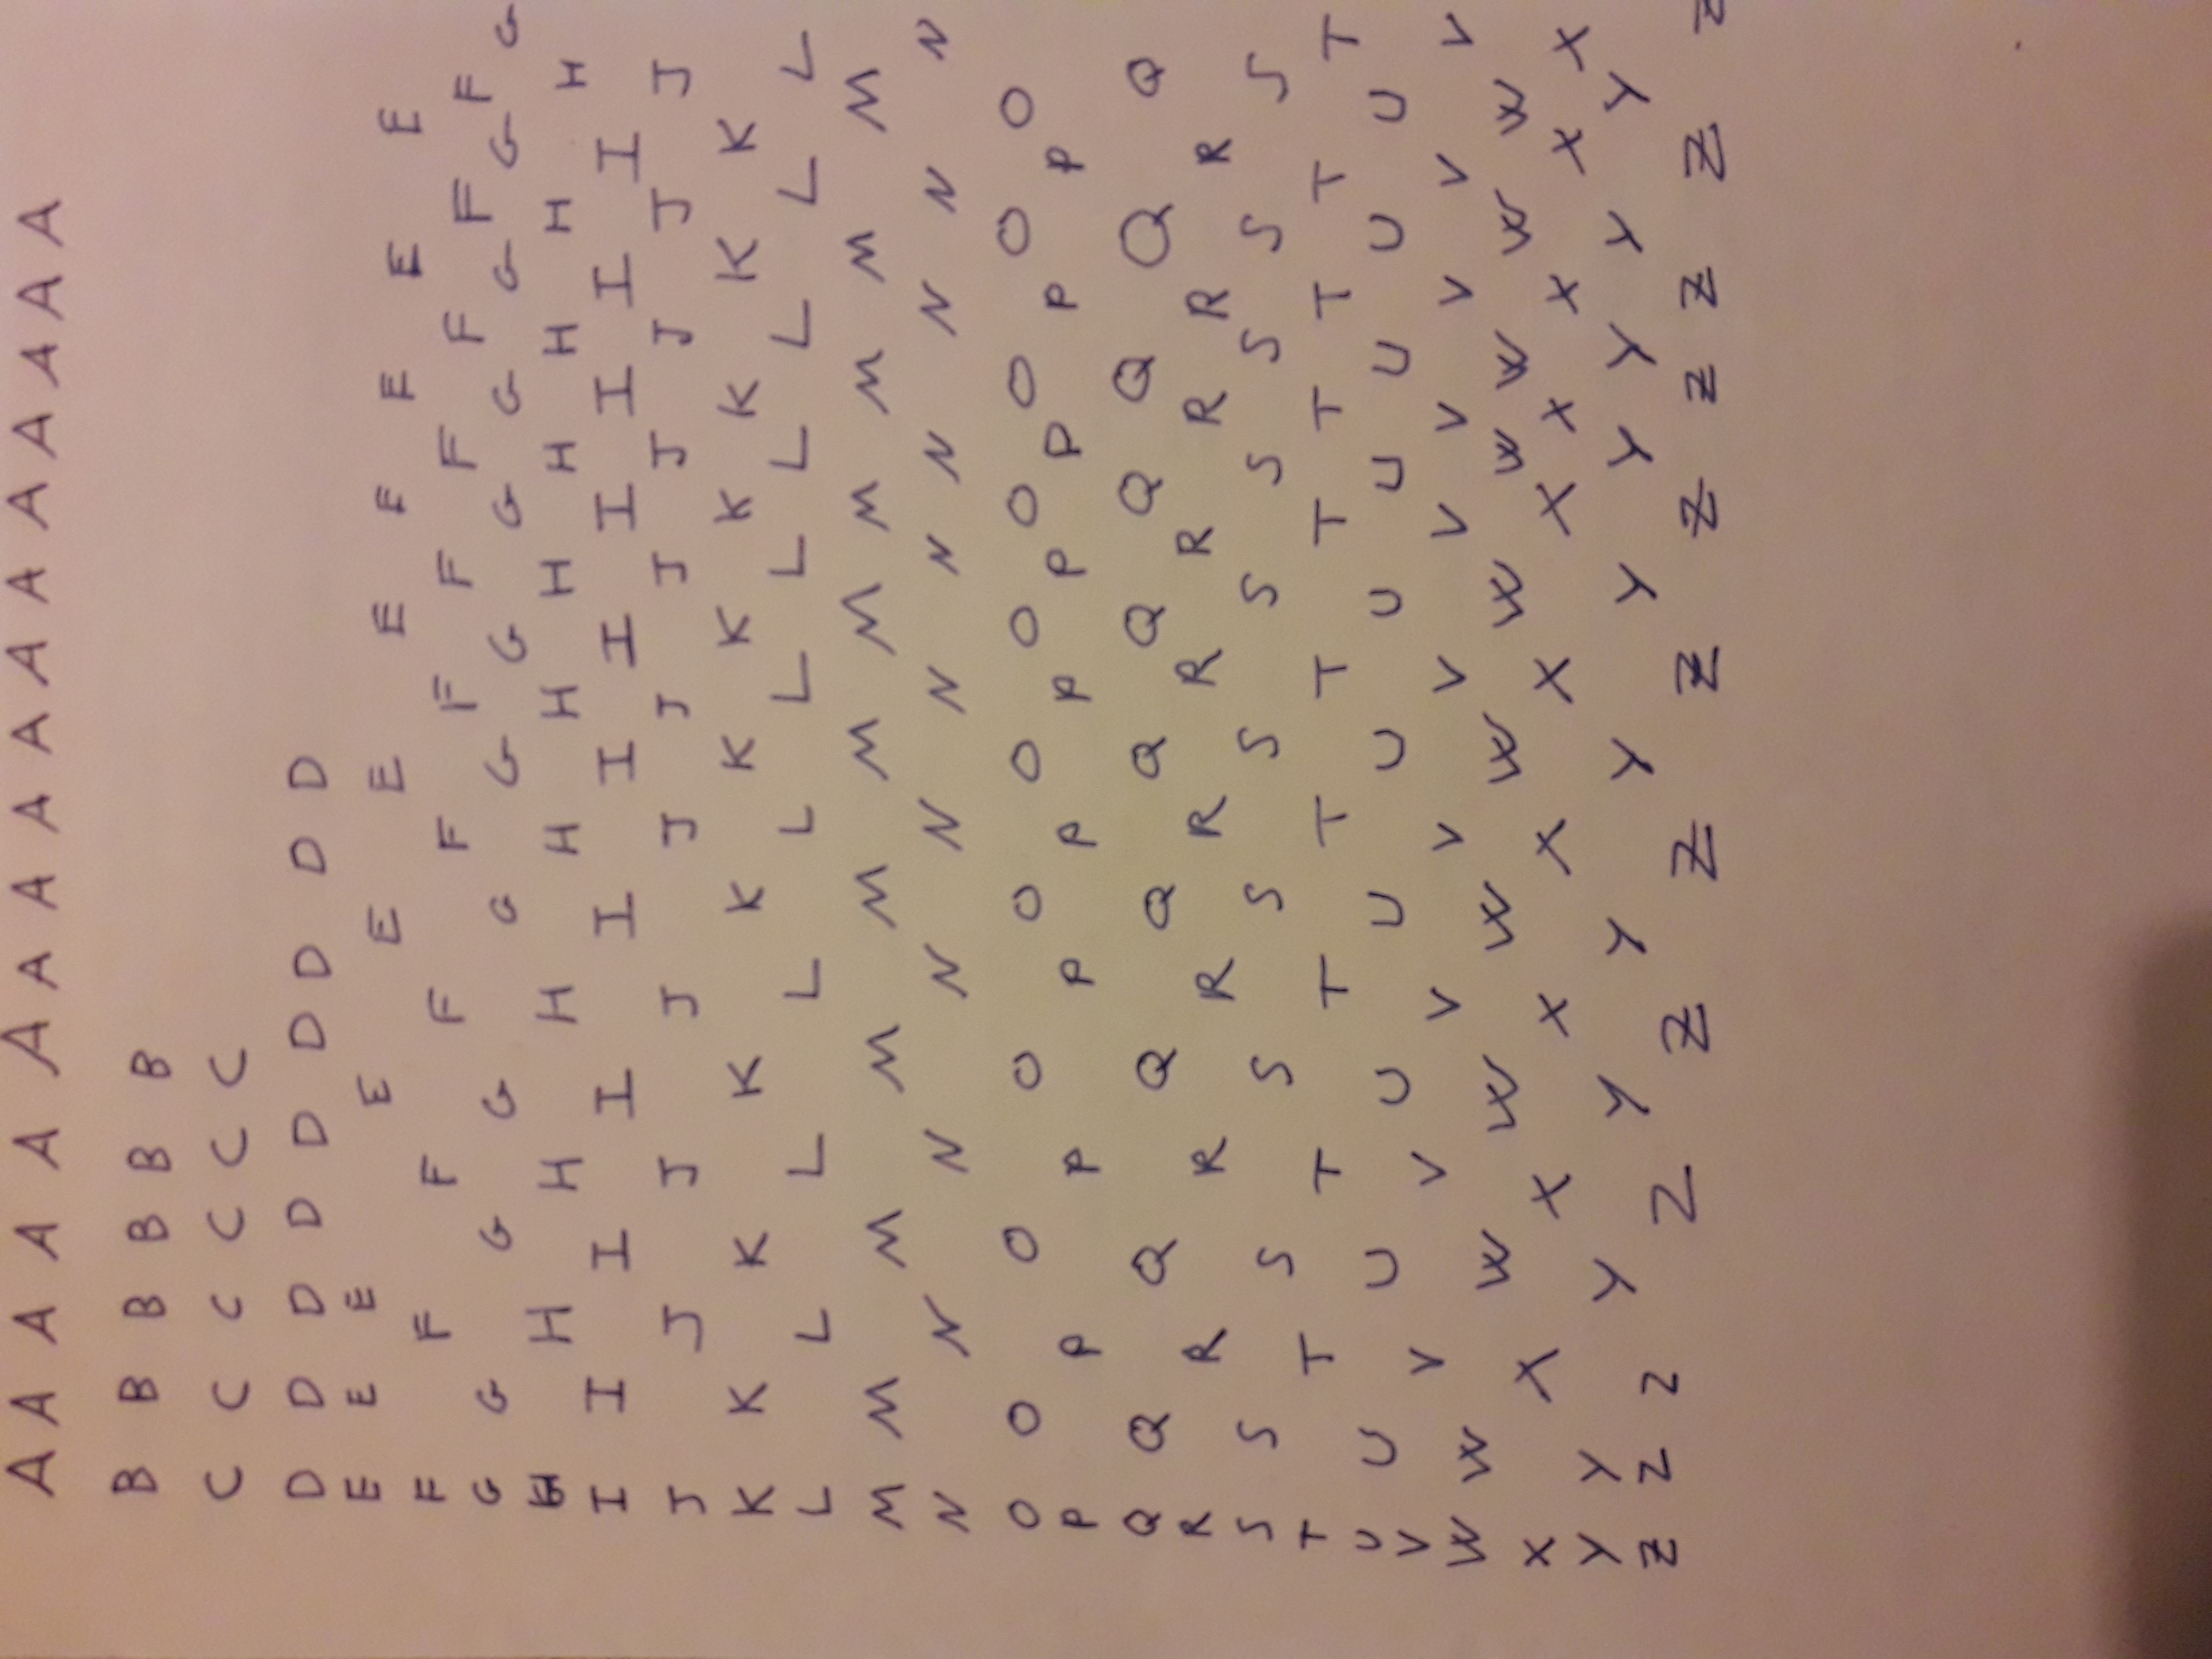 A A A A A A A A A A A A A A A A A
B B B B B B
C C C C C C
D D D D D D D D D
E E E E E E E E E E E
F F F F F F F F F F F
G G G G G G G G G G G G
H H H H H H H H H H H
I I I I I I I I I I I
J J J J J J J J J J J
K K K K K K K K K K K
L L L L L L L L L L L
M M M M M M M M M M M
N N N N N N N N N N N
O O O O O O O O O O O
P P P P P P P P P P
Q Q Q Q Q Q Q Q Q Q Q
R R R R R R R R R R
S S S S S S S S S S S
T T T T T T T T T T T
U U U U U U U U U U U
V V V V V V V V V V V
W W W W W W W W W W W
X X X X X X X X X X X
Y Y Y Y Y Y Y Y Y Y Y
Z Z Z Z Z Z Z Z Z Z Z Z